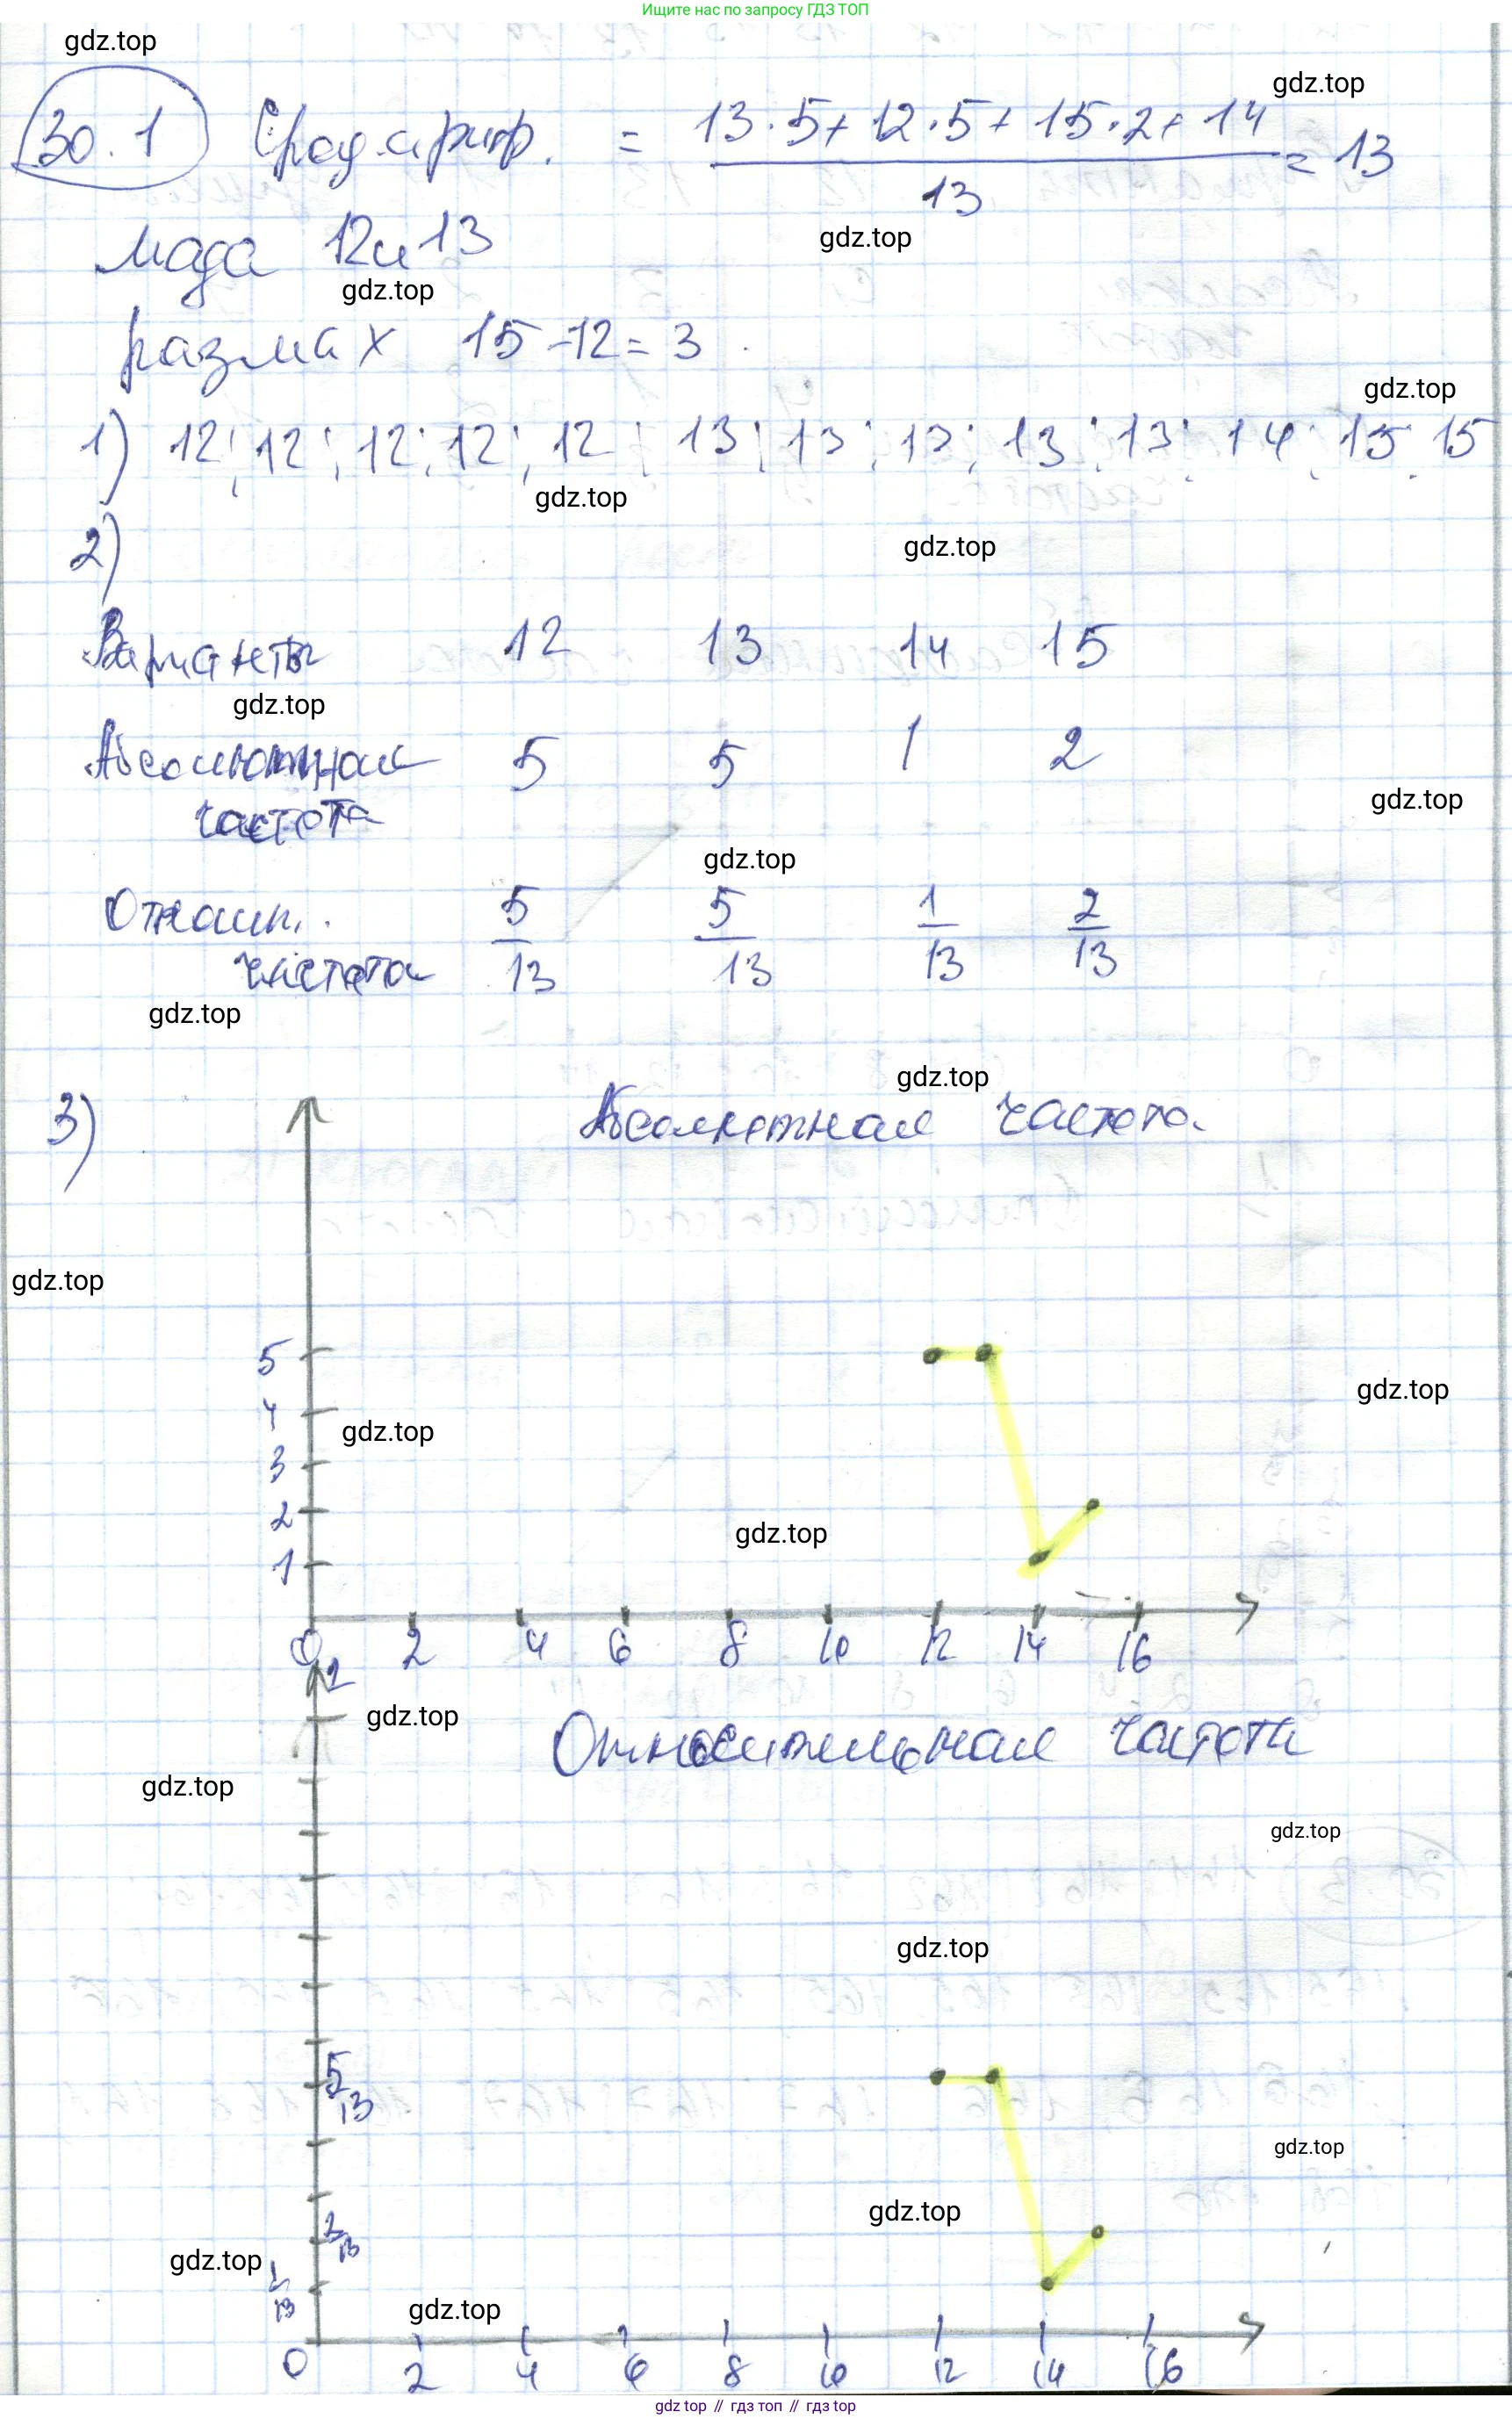 Ищите нас по запросу ГДЗ ТОП
gdz.top
gdz.top
30.1 Сред.арифм. = 13·5+12·5+15·2+14 / 13 = 13
мода 12 и 13
gdz.top
gdz.top
размах 15-12=3
gdz.top
1) 12; 12; 12; 12; 12; 13; 13; 13; 13; 13; 14; 15; 15
gdz.top
2)
gdz.top
Варианты 12 13 14 15
gdz.top
Абсолютная 5 5 1 2
частота
gdz.top
gdz.top
Относит. 5/13 5/13 1/13 2/13
частота
gdz.top
gdz.top
3) Абсолютная частота
gdz.top
5
gdz.top
4
gdz.top
3
2
gdz.top
1
0 2 4 6 8 10 12 14 16
gdz.top
Относительная частота
gdz.top
gdz.top
gdz.top
5/13
gdz.top
gdz.top
2/13
gdz.top
1/13
gdz.top
0 2 4 6 8 10 12 14 16
gdz top // гдз топ // гдз top